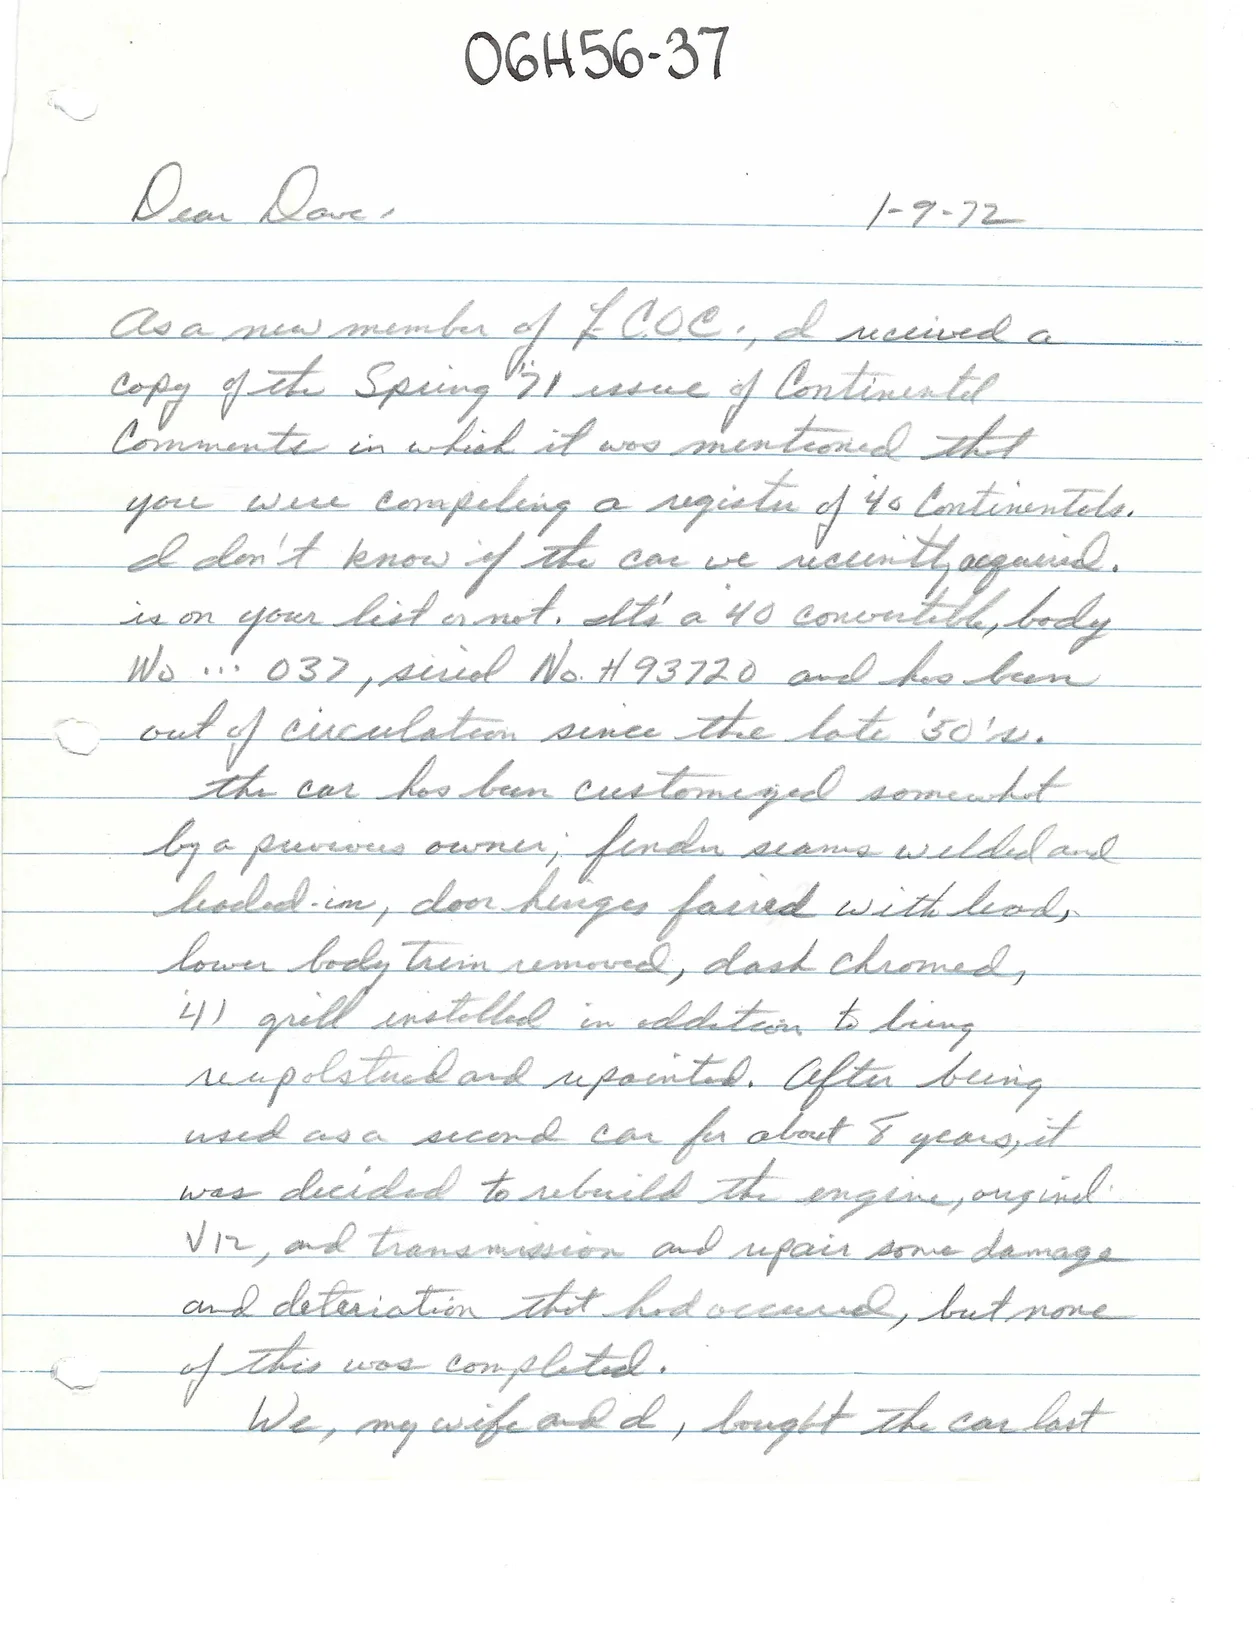 06H56-37
Dear Dave, 1-9-72
As a new member of L.C.O.C., I received a
copy of the Spring '71 issue of Continental
Comments in which it was mentioned that
you were compiling a register of '40 Continentals.
I don't know if the car we recently acquired.
is on your list or not. It's a '40 convertible, body
No ... 037, serial No. H93720 and has been
out of circulation since the late '50's.
The car has been customized somewhat
by a previous owner; fender seams welded and
leaded-in, door hinges faired with lead,
lower body trim removed, dash chromed,
'41 grill installed in addition to being
reupolstured and repainted. After being
used as a second car for about 8 years, it
was decided to rebuild the engine, original
V12, and transmission and repair some damage
and deteriation that had occured, but none
of this was completed.
We, my wife and I, bought the car last